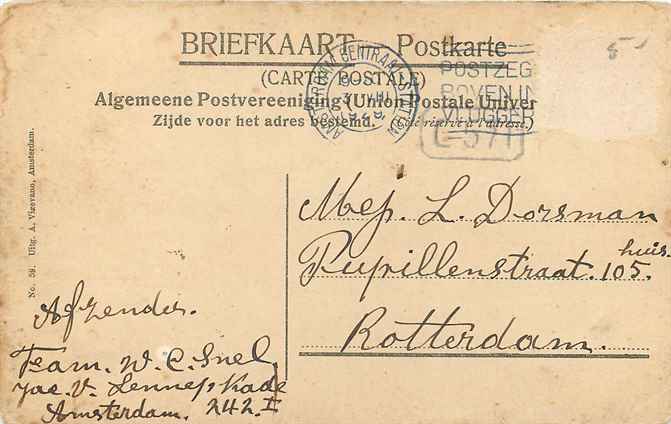 BRIEFKAART — Postkarte
(CARTE POSTALE)
Algemeene Postvereeniging (Union Postale Univer
Zijde voor het adres bestemd. (Côté réservé à l'adresse.)
AMSTERDAM CENTRAAL STATION
POSTZEG
BOVEN IN
VLUGGER
L=571
5-
No. 59. Uitg. A. Vigevano, Amsterdam.
Mej. L. Dorsman
Pupillenstraat 105 huis.
Rotterdam.
Afzender.
Fam. W. C. Snel
Jac. v. Lennep Kade
Amsterdam. 242 I